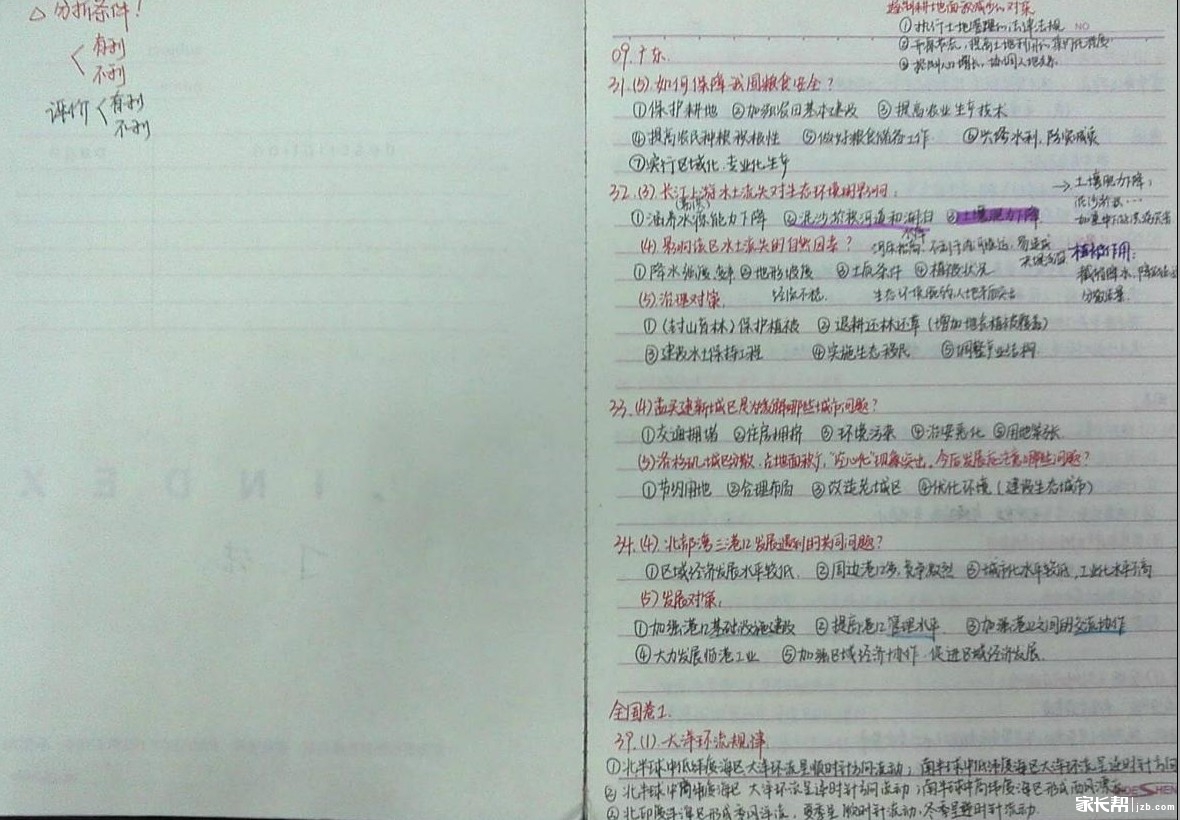 △分析条件！
有利
不利
评价
有利
不利
控制耕地面积减少的对策
①执行土地管理的法律法规 NO
09.广东.
31.(5).如何保障我国粮食安全？
①保护耕地 ②加强农田基本建设 ③提高农业生产技术
④提高农民种粮积极性 ⑤做好粮食储备工作 ⑥兴修水利,防灾减灾
⑦实行区域化.专业化生产
32.(3)长江上游水土流失对生态环境的影响.
①涵养水源能力下降 ②泥沙淤积河道和湖泊 ③土壤肥力下降
→土壤肥力下降;
(4)影响该区水土流失的自然因素？
植被作用:
①降水强度 ②地形坡度 ③土质条件 ④植被状况
(5).治理对策.
①(封山育林)保护植被 ②退耕还林还草(增加地表植被覆盖)
③建设水土保持工程 ④实施生态移民 ⑤调整产业结构
33.(4)孟买建新城区是为缓解哪些城市问题？
①交通拥堵 ②住房拥挤 ③环境污染 ④治安恶化 ⑤用地紧张
(5)洛杉矶城区分散.占地面积广,"空心化"现象突出.今后发展应注意哪些问题？
①节约用地 ②合理布局 ③改造老城区 ④优化环境(建设生态城市)
34.(4).北部湾三港口发展遇到的共同问题？
①区域经济发展水平较低. ②周边港口多,竞争激烈 ③城市化水平较低,工业化水平不高
(5)发展对策.
①加强港口基础设施建设 ②提高港口管理水平. ③加强港口之间的交流协作
④大力发展临港工业 ⑤加强区域经济协作.促进区域经济发展.
全国卷I.
39.(1).大洋环流规律
①北半球中低纬度海区大洋环流呈顺时针方向流动;南半球中低纬度海区大洋环流呈逆时针方向
②北半球中高纬度海区大洋环流呈逆时针方向流动;南半球中高纬度海区形成西风漂流
③北印度洋海区形成季风洋流,夏季呈顺时针流动.冬季呈逆时针流动.
家长帮 jzb.com